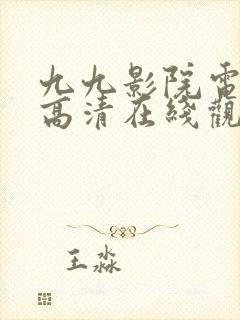 九九影院電
高清在綫觀
王淼